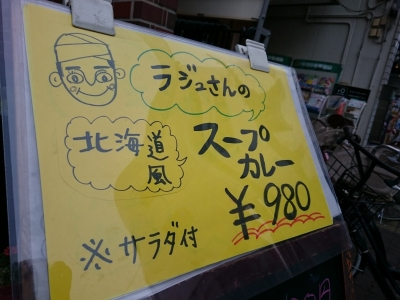 ラジュさんの
北海道風
スープ
カレー
¥980
※サラダ付
円